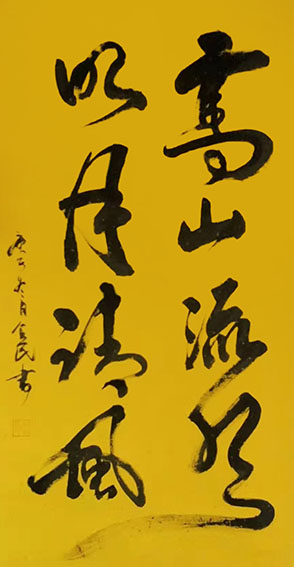 高山流水
明月清風
庚子冬月民书